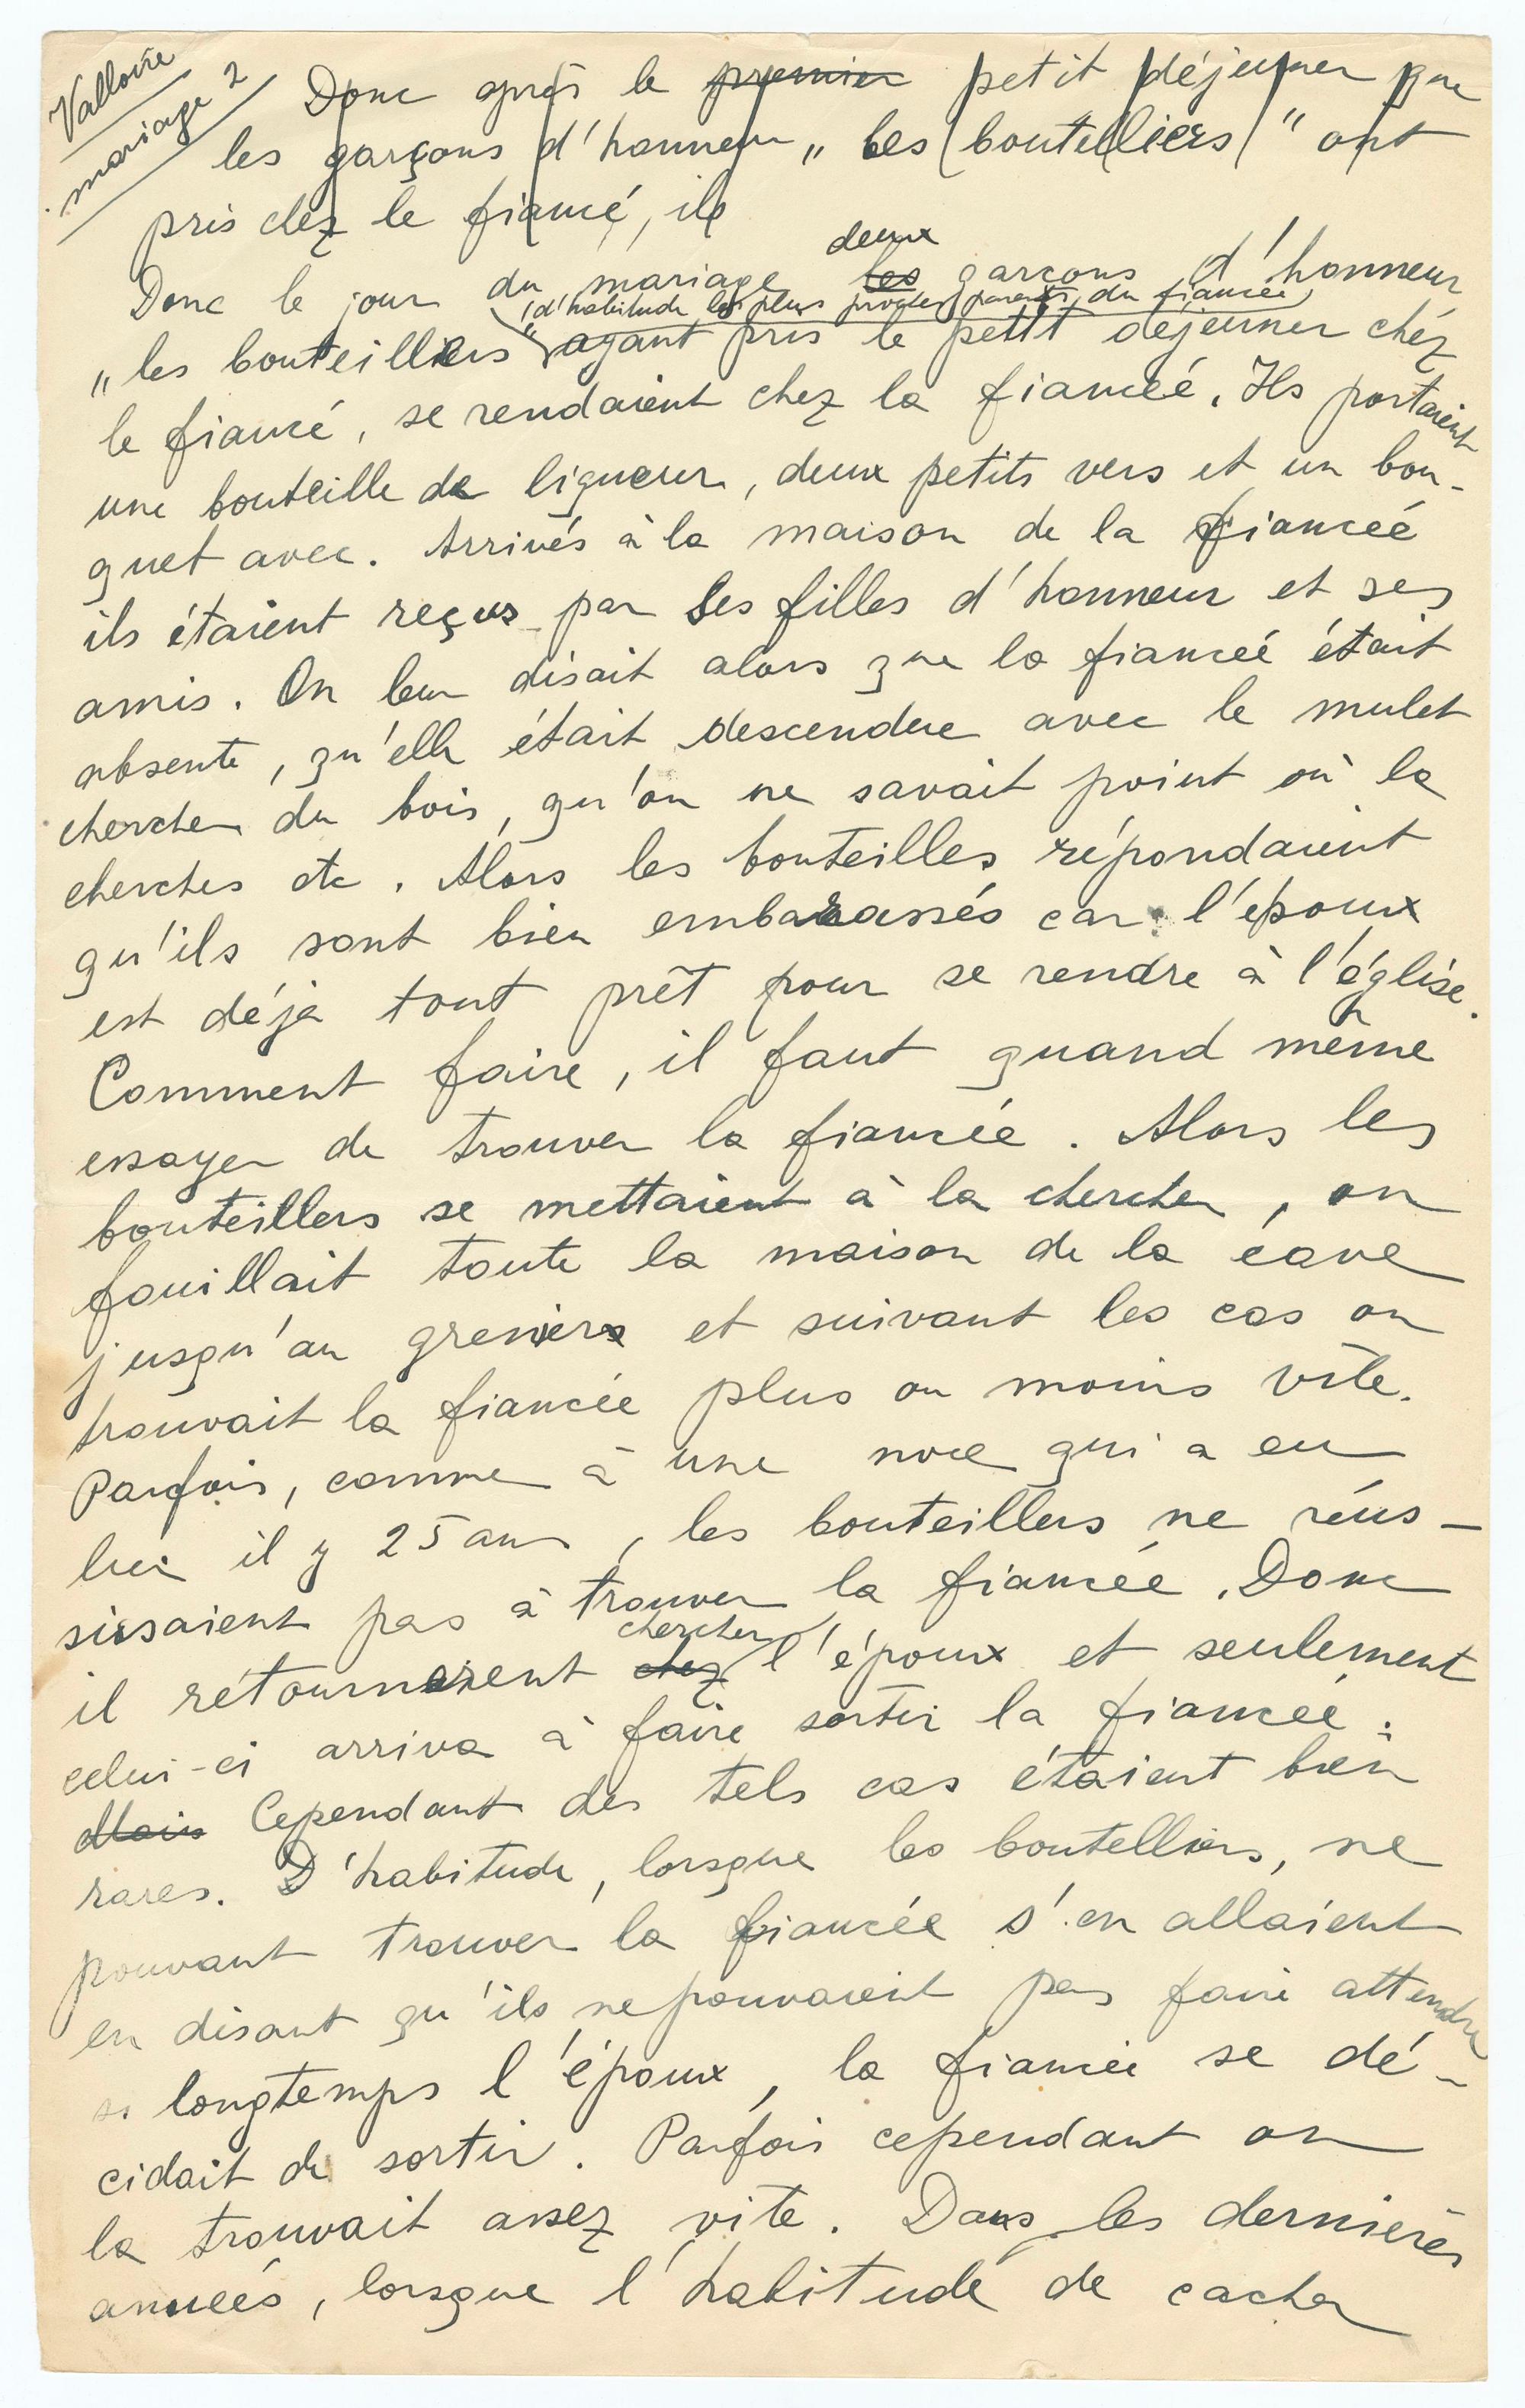 Valloire
mariage 2
Donc après le premier petit déjeuner que
les garçons d'honneur „ les boutelliers " ont
pris chez le fiancé, ils
Donc le jour du mariage les deux garçons d'honneur
(d'habitude les plus proches parents du fiancée)
„ les bouteilliers " ayant pris le petit déjeuner chéz
le fiancé, se rendaient chez la fianceé. Ils portaient
une bouteille de liqueur, deux petits vers et un bou-
quet avec. Arrivés à la maison de la fianceé
ils étaient reçus par les filles d'honneur et ses
amis. On leur disait alors que la fianceé était
absente, qu'elle était descendue avec le mulet
chercher du bois, qu'on ne savait point où la
cherches etc. Alors les bouteilles répondaient
qu'ils sont bien embarassés car l'époux
est déja tout prêt pour se rendre à l'église.
Comment faire, il faut quand même
essayer de trouver la fiancée. Alors les
bouteillers se mettaient à la chercher, on
fouillait toute la maison de la cave
jusqu'au greniers et suivant les cas on
trouvait la fiancée plus ou moins vite.
Parfois, comme à une noce qui a eu
lieu il y 25 ans, les bouteillers ne réus-
sissaient pas à trouver la fiancée. Donc
il rétournerent chez chercher l'époux et seulement
celui-ci arriva à faire sortir la fianceé.
Mais Cependant des tels cas étaient bien
rares. D'habitude, lorsque les boutelliers, ne
pouvant trouver la fiancée s'en allaient
en disant qu'ils ne pouvaient pas faire attendre
si longtemps l'époux, la fiancée se dé-
cidait de sortir. Parfois cependant on
la trouvait assez vite. Dans les dernierès
anneés, lorsque l'habitude de cacher